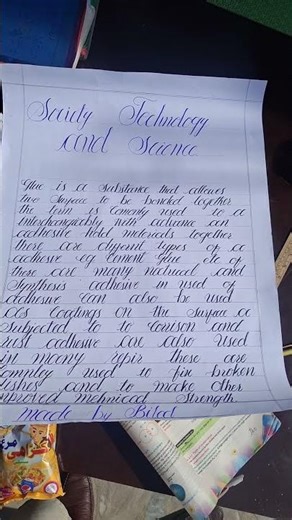 Society Technology
and Science
Glue is a substance that allows
two surface to be bonded together
the term is comonly used to a
interchangwibly with
adhesive hold materials together
there are types of a
adhesive eg cement glue etc of
these are many natrucal and
Synthesis adhesive in used of
adhesive can also be used
as Coatings on the surface a
Subjected to to and
rust adhesive are also used
in many repir these are
used to fix broken
and to make other
Strength
made by Bilal